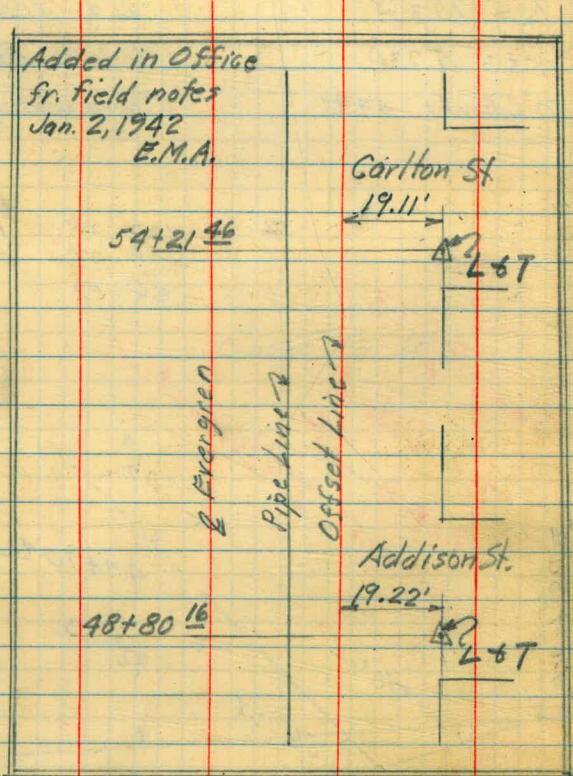 Added in Office
fr. field notes
Jan. 2, 1942
E.M.A.
Carlton St
19.11'
54+21 46
L & T
℄ Evergren
Pipe Line
Offset Line
Addison St.
19.22'
48+80 16
L & T